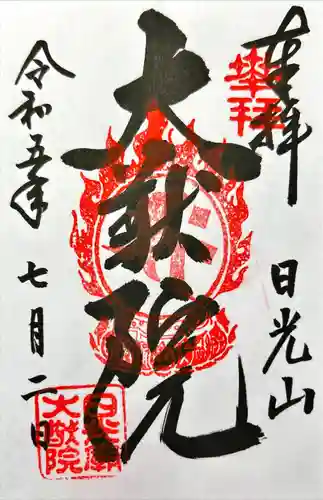 奉拝
日光山
大猷院
令和五年七月二日
奉拝
日光廟
大猷院